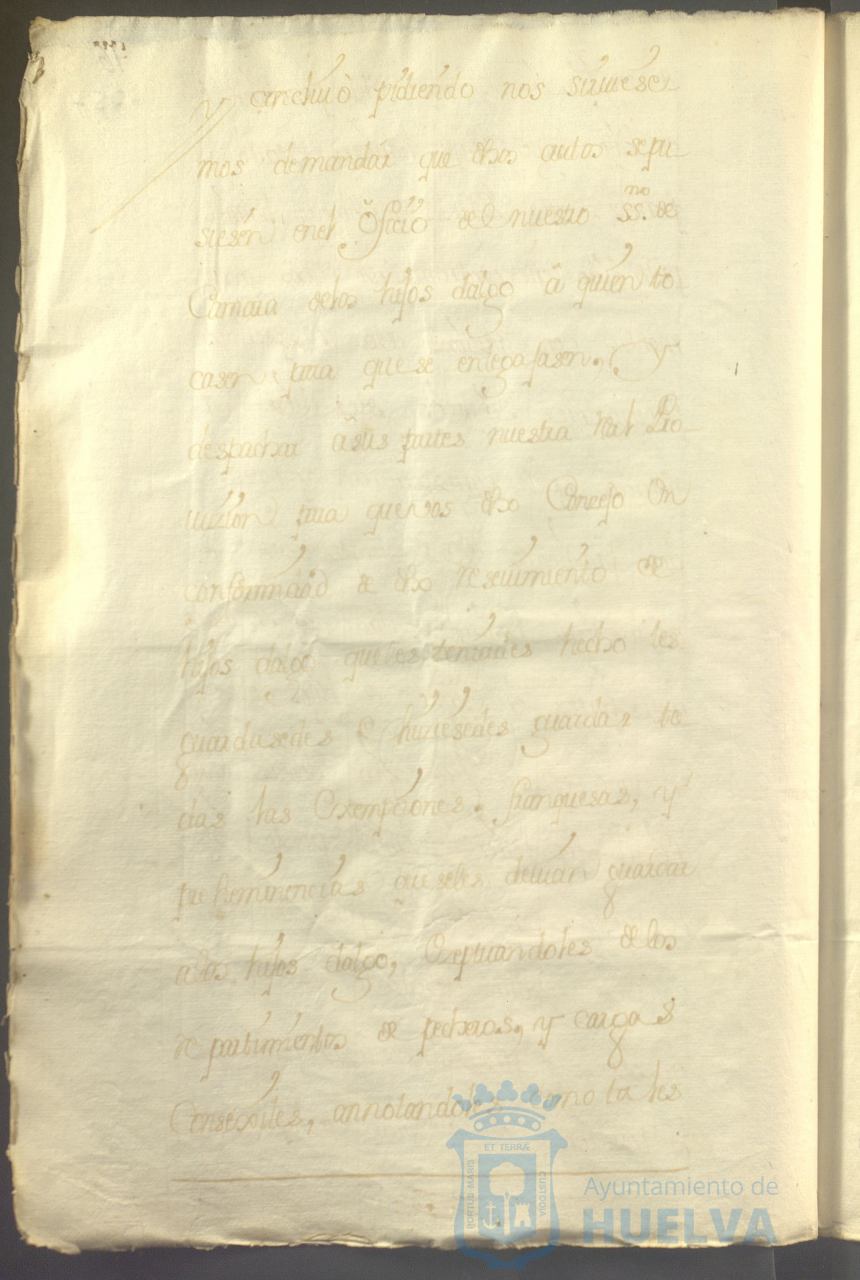 y concluiò pidiendo nos siruiese-
mos demandàr que dhos autos sepu-
siesen enel Oficio del nuestro ss.no de
Camara delos hijos dalgo â quien to-
casen, para que se entregasen, Y
despachar a estas partes nuestra Real Pro-
uizion para que vos dho Concejo En
conformidad de dho reseuimiento de
hijos dalgo queles teniades hecho les
guardasedes e hiziesedes guardar to-
das las Exempciones, franquesas, y
preheminencias que seles deuian guardar
alos hijos dalgo, Exeptuandoles delos
repartimientos de pecheros, y cargas
Consexiles, annotandoles como tales
ET TERRÆ
PORTUS MARIS
CUSTODIA
Ayuntamiento de
HUELVA